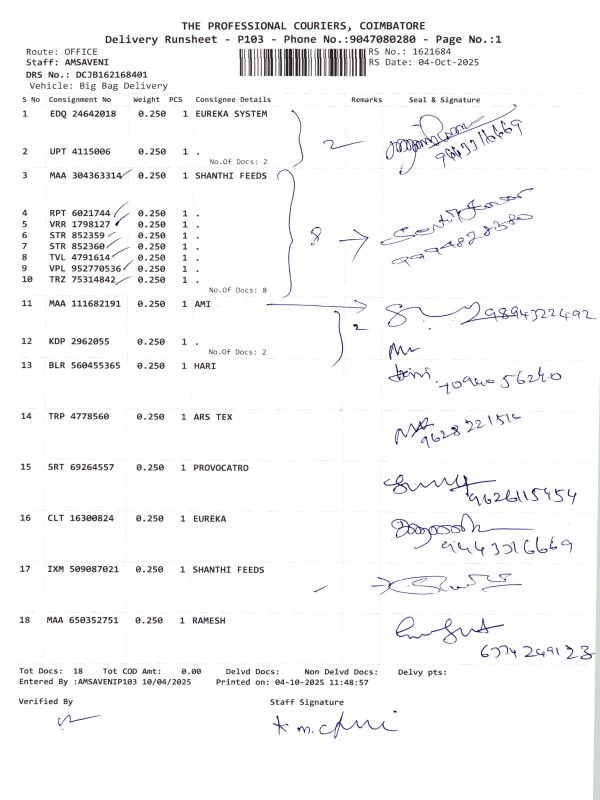 THE PROFESSIONAL COURIERS, COIMBATORE
Delivery Runsheet - P103 - Phone No.:9047080280 - Page No.:1
Route: OFFICE
RS No.: 1621684
Staff: AMSAVENI
RS Date: 04-Oct-2025
DRS No.: DCJB162168401
Vehicle: Big Bag Delivery
S No Consignment No Weight PCS Consignee Details Remarks Seal & Signature
1 EDQ 24642018 0.250 1 EUREKA SYSTEM
2
2 UPT 4115006 0.250 1 .
No.Of Docs: 2
3 MAA 304363314 0.250 1 SHANTHI FEEDS
4 RPT 6021744 0.250 1 .
5 VRR 1798127 0.250 1 .
6 STR 852359 0.250 1 .
8
7 STR 852360 0.250 1 .
8 TVL 4791614 0.250 1 .
9 VPL 952770536 0.250 1 .
10 TRZ 75314842 0.250 1 .
No.Of Docs: 8
11 MAA 111682191 0.250 1 AMI 9894322492
2
12 KDP 2962055 0.250 1 .
No.Of Docs: 2
13 BLR 560455365 0.250 1 HARI
14 TRP 4778560 0.250 1 ARS TEX
15 SRT 69264557 0.250 1 PROVOCATRO
9626115454
16 CLT 16300824 0.250 1 EUREKA
9443316669
17 IXM 509087021 0.250 1 SHANTHI FEEDS
18 MAA 650352751 0.250 1 RAMESH
6374249123
Tot Docs: 18 Tot COD Amt: 0.00 Delvd Docs: Non Delvd Docs: Delvy pts:
Entered By :AMSAVENIP103 10/04/2025 Printed on: 04-10-2025 11:48:57
Verified By Staff Signature